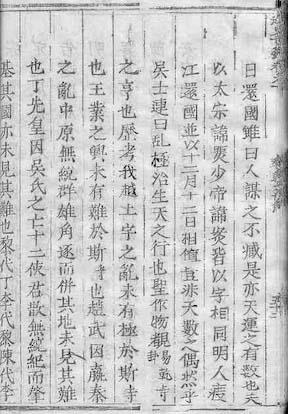 曰還國雖曰人謀之不臧是亦天運之有數也天
以太宗諱煚少帝諱炎皆以字相同明人疲
江還國並以十二月十二日相值豈非天數之偶然乎
吳士連曰亂極治生天之行也聖作物覩易乾亨
之亨也歷考我越土宇之亂未有極於斯寺
也王業之興未有難於斯者也趙武因嬴秦
之亂中原無統群雄角逐而併其地未見其難
也丁先皇因吳氏之亡十二使君散無統紀而肇
基其國亦未見其難也黎代丁李代黎陳代李